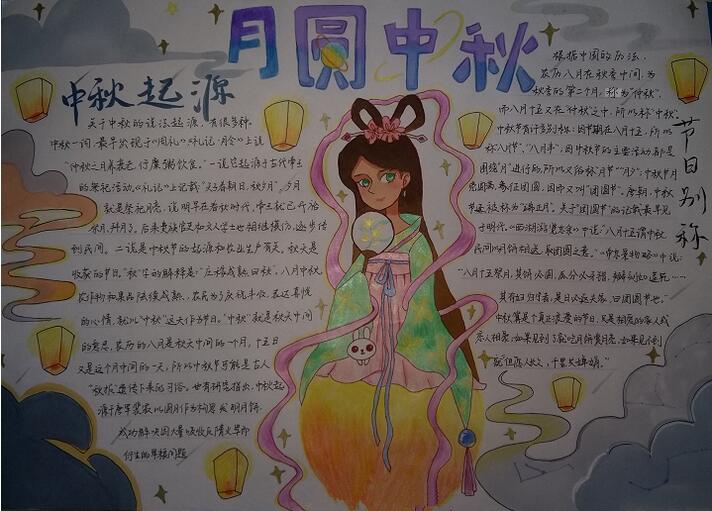 月圆中秋
中秋起源
关于中秋的说法起源,有很多种。
中秋一词,最早出现于《周礼》。《礼记·月令》上说
"仲秋之月养衰老,行糜粥饮食。"一说它起源于古代帝王
的祭祀活动。《礼记》上记载:"天子春朝日,秋夕月",夕月
就是祭祀月亮,说明早在春秋时代,帝王就已开始
祭月、拜月了。后来贵族官吏和文人学士也相继模仿,逐步传
到民间。二说是中秋节的起源和农业生产有关。秋天是
收获的节日。"秋"字的解释是:"庄稼成熟曰秋"。八月中秋,
农作物和果品陆续成熟,农民为了庆祝丰收,表达喜悦
的心情,就以"中秋"这天作为节日。"中秋"就是秋天中间
的意思,农历的八月是秋天中间的一个月,十五日
又是这个月中间的一天,所以中秋节可能是古人
"秋报"遗传下来的习俗。也有研究指出,中秋起
源于唐军
以圆月作为
明月饼,
成功解决因大量吸收
衍生的军粮问题
节日别称
根据中国的历法,
农历八月在秋季中间,为
秋季的第二个月,称为"仲秋",
而八月十五又在"仲秋"之中,所以称"中秋"。
中秋节有许多别称:因节期在八月十五,所以
称"八月节"、"八月半";因中秋节的主要活动都是
围绕"月"进行的,所以又俗称"月节""月夕";中秋节月
亮圆满,象征团圆,因而又叫"团圆节"。唐朝,中秋
节还被称为"端正月"。关于"团圆节"的记载最早见
于明代。《西湖游览志余》中说:"八月十五谓中秋,
民间以月饼相送,取团圆之意"。《帝京景物略》中说:
"八月十五祭月,其饼必圆,分瓜必牙错,瓣刻如莲花……
其有妇归宁者,是日必返夫家,曰团圆节也。"
中秋算是个真正浪漫的节日,只是相爱的家人或
恋人相亲,如果见到了就吃月饼赏月亮,如果见不到
就"但愿人长久,千里共婵娟。"